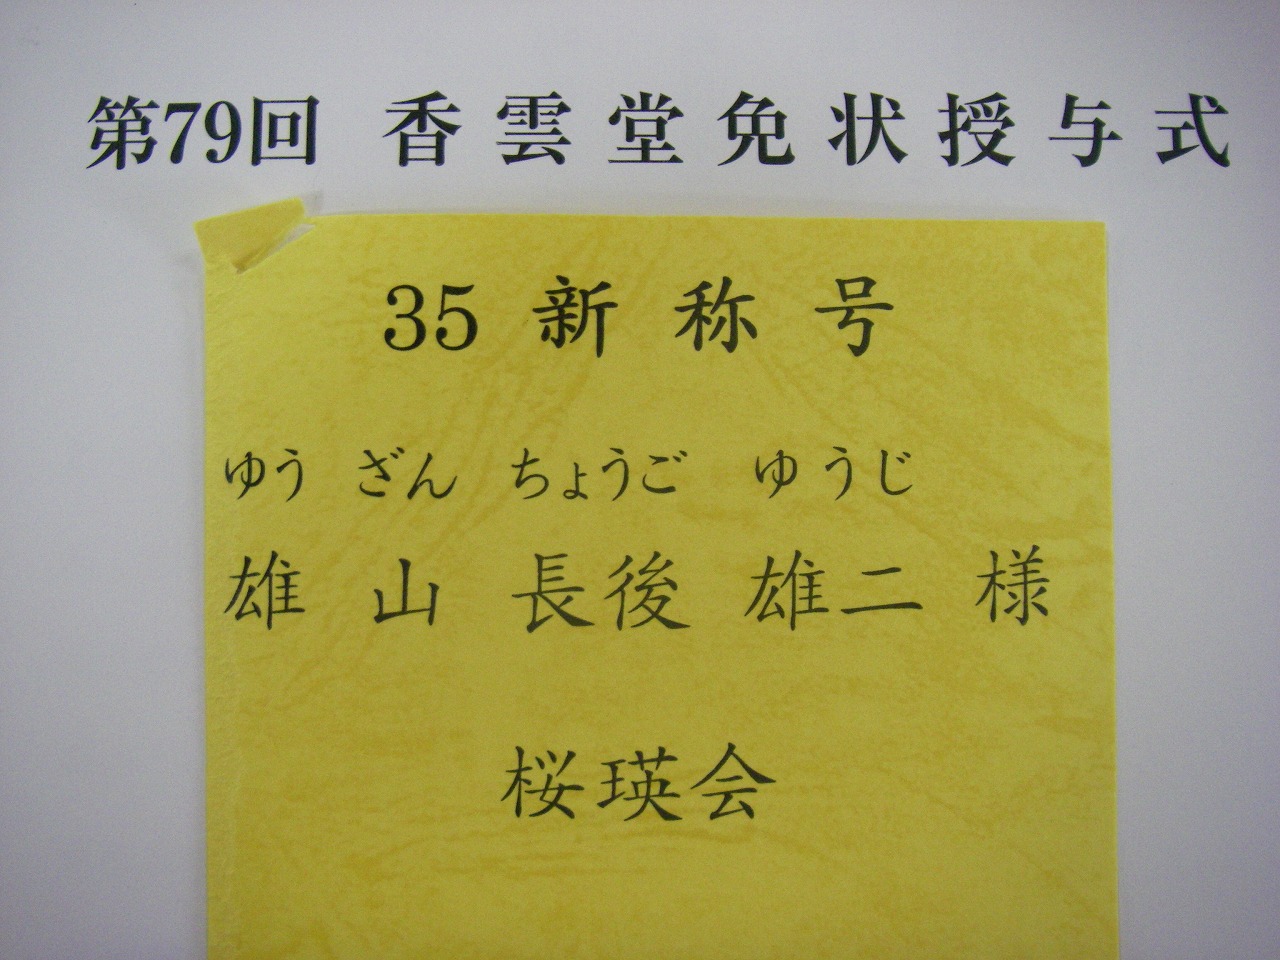 第79回 香雲堂免状授与式
35 新称号
ゆう ざん ちょうご ゆうじ
雄 山 長後 雄二 様
桜瑛会